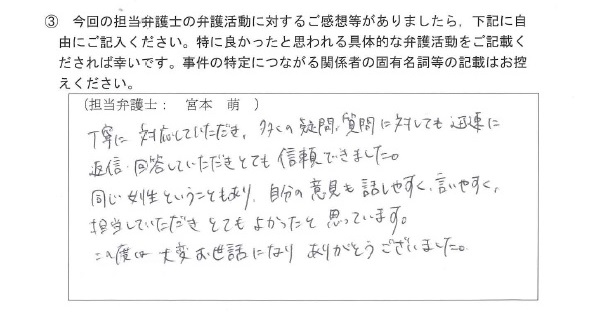 ③　今回の担当弁護士の弁護活動に対するご感想等がありましたら，下記に自
由にご記入ください。特に良かったと思われる具体的な弁護活動をご記載く
だされば幸いです。事件の特定につながる関係者の固有名詞等の記載はお控
えください。
（担当弁護士：　宮本　萌　）
丁寧に対応していただき、多くの疑問、質問に対しても迅速に
返信・回答していただきとても信頼できました。
同じ女性ということもあり、自分の意見も話しやすく、言いやすく、
担当していただきとてもよかったと思っています。
この度は大変お世話になりありがとうございました。